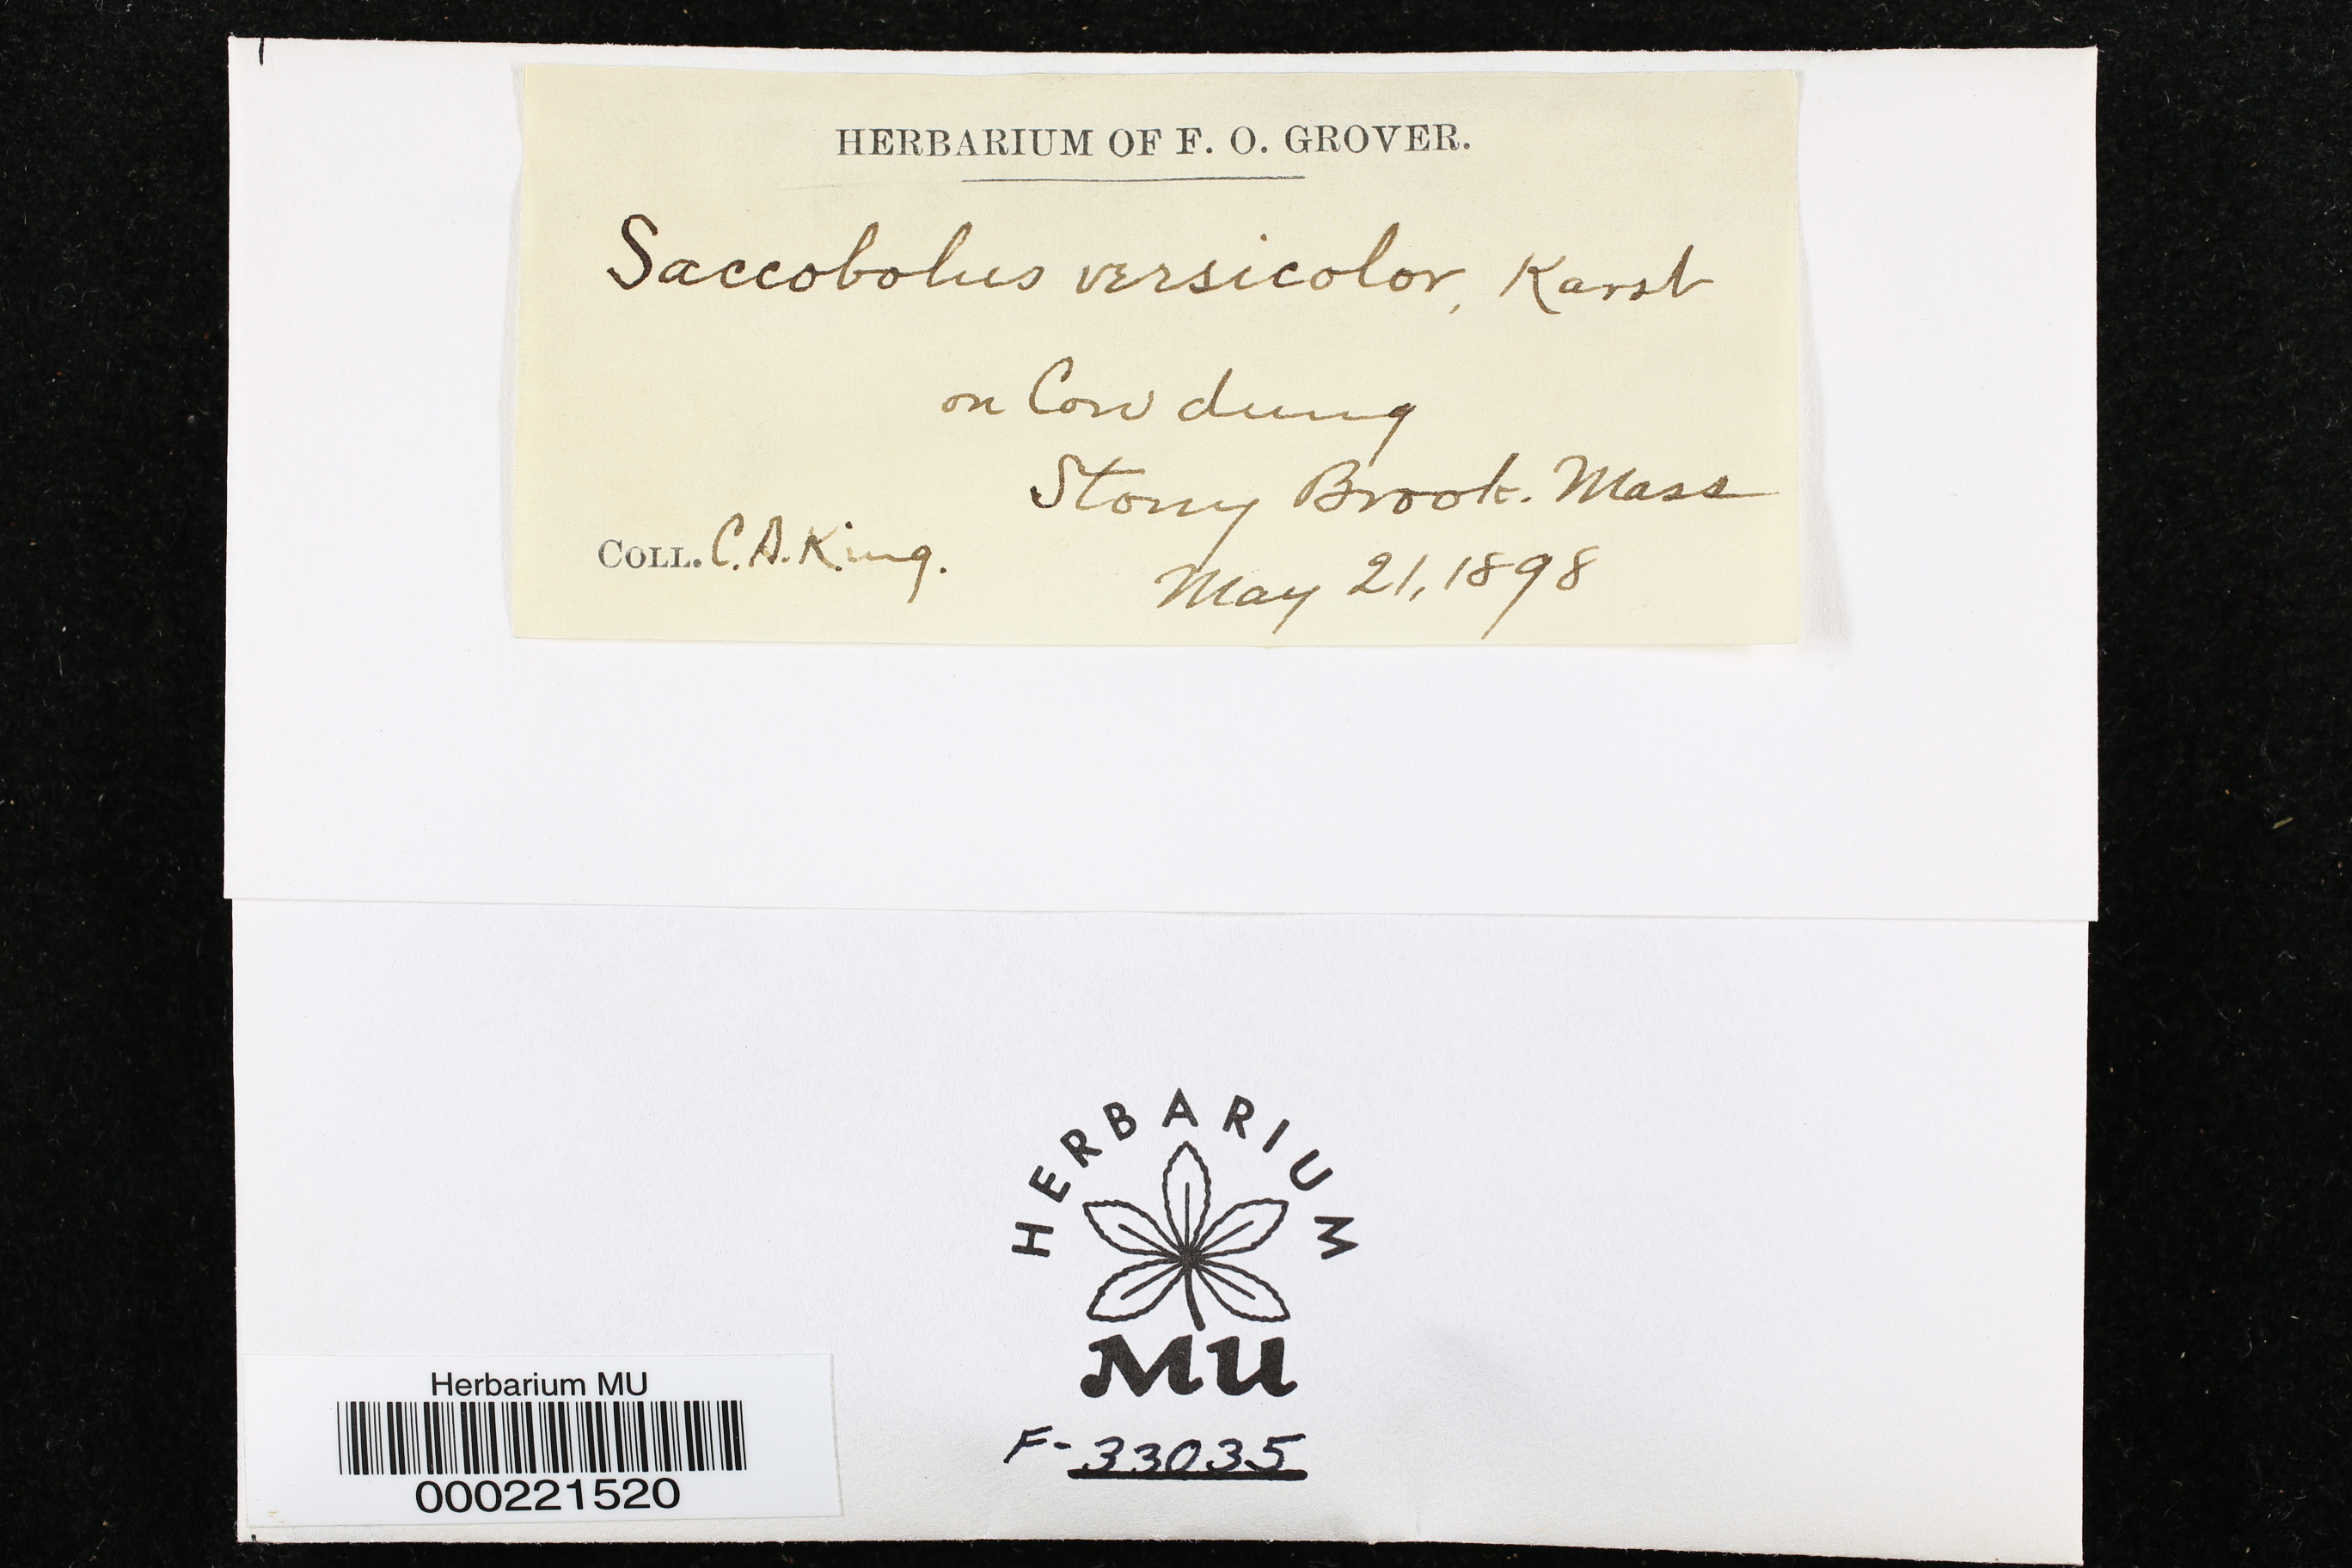 HERBARIUM OF F. O. GROVER.
Saccobolus versicolor, Karst
on Cow dung
Stony Brook. Mass
COLL. C. A. King.
May 21, 1898
HERBARIUM
MU
F-33035
Herbarium MU
000221520